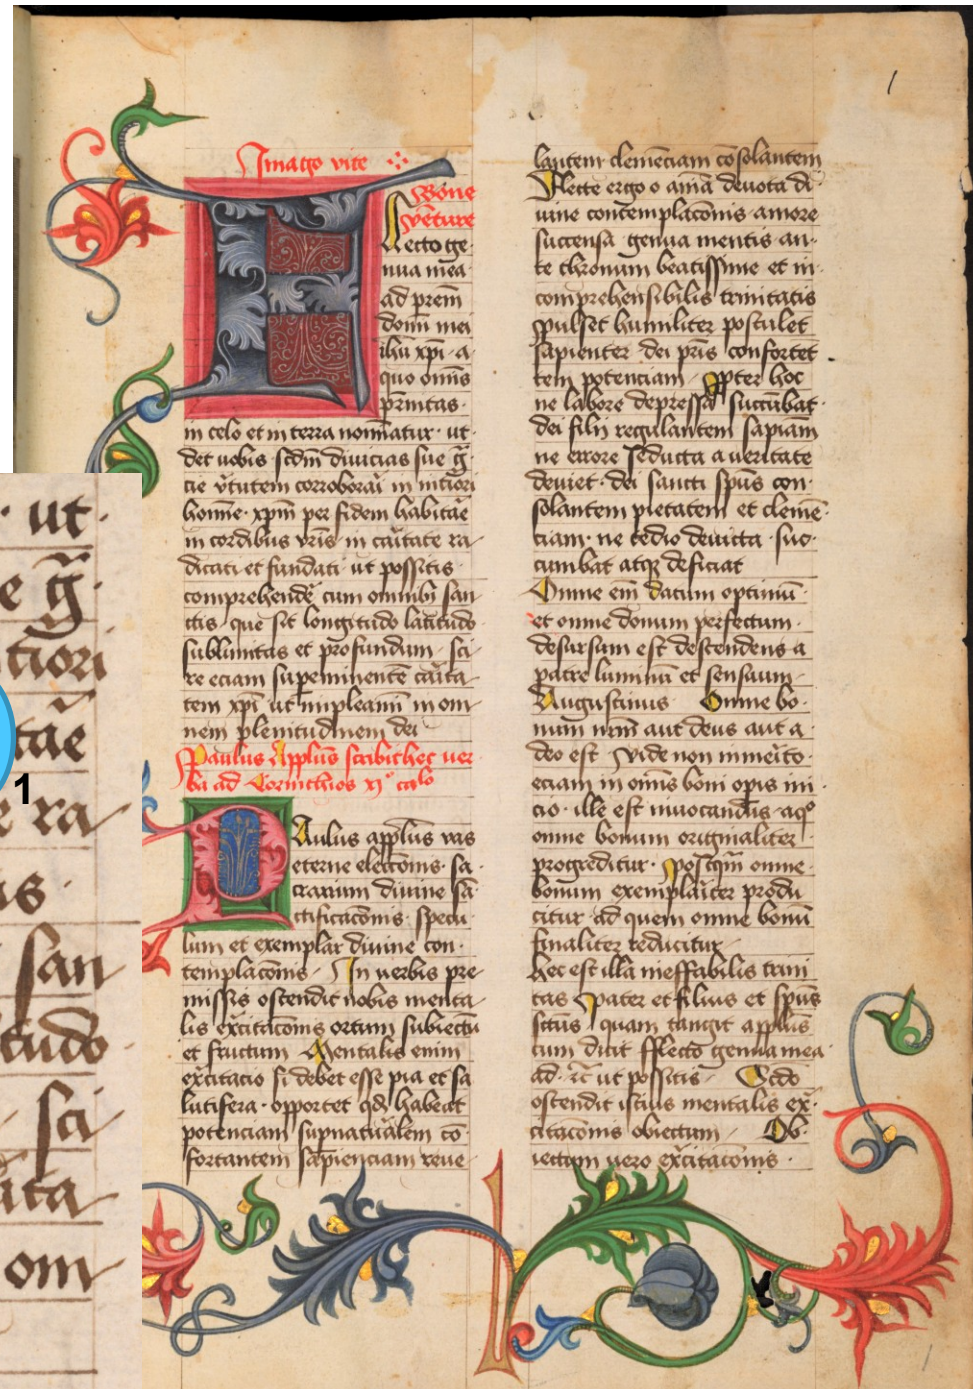 Imago vite
Bone
vēture
Flecto ge
nua mea
ad prēm
domī mei
ihū xpi · a
quo omīs
pr̄nitas
in celo et in terra nomīatur · ut
det uobis scdm̄ diuicias sue gr̄
cie v̄tutem corroborai in intiori
homīe · xpm̄ per fidem habitāe
in cordibus vr̄is in caītate ra
dicati et fundati ut possitis
comprehendē cum omnibꝫ san
ctis que sit longitudo latitudo
sublimitas et profundum · sci
re eciam supeminentē caīta
tem xpi ut impleamī in om
nem plenitudinem dei
Paulus applūs scribit hec uer
ba ad Corinthios xjº calo
Paulus applūs vas
eterne elecc̄onis · sa
crarium diuine sā
ctificac̄onis · specu
lum et exemplar diuine con
templac̄onis · In uerbis pre
missis ostendit nobis menta
lis exc̄itac̄onis ortum subiectū
et fructum Mentalis enim
exc̄itacio si debet esse pia et sa
lutifera · opportet qd habeat
potenciam supnatuālem cō
fortantem sapienciam reue
lantem clemēciam cōsolantem
Flecte ergo o aīma deuota di
uine contemplac̄onis amore
succensa genua mentis an
te thronum beatissime et in
comprehensibilis trinitatis
pulset humiliter postulet
sapienter dei pr̄is confortet
tem potenciam · ꝓpter hoc
ne labore depressa succūbat
dei filij regulantem sapiam̄
ne errore seducta a veritate
deuiet · dei sancti sp̄us con
solantem pietatem et clemē
ciam · ne tedio deuicta suc
cumbat atqꝫ deficiat
Omne em̄ datum optimū
et omne donum perfectum
desursum est descendens a
patre luminū et sensuum
Augustinus Omne bo
num nr̄m aut deus aut a
deo est Vnde non inmeīto
eciam in omīs boni opis ini
cio · ille est inuocandus · a qº
omne bonum originaliter
progreditur · post qm̄ omne
bonum exemplaīter produ
citur ad quem omne bonū
finaliter reducitur
Hec est illa ineffabilis trini
tas pater et filius et sp̄us
sctūs quam tangit applūs
cum dicit fflecto genua mea
ad · ꝛc̄ ut possitis Scdo
ostendit istius mentalis ex
citac̄onis obiectum Ob
iectum uero exc̄itac̄onis
1
· ut
e gr̄
tiori
tāe
1
e ra
is ·
san
tudo
· sci
īta
om